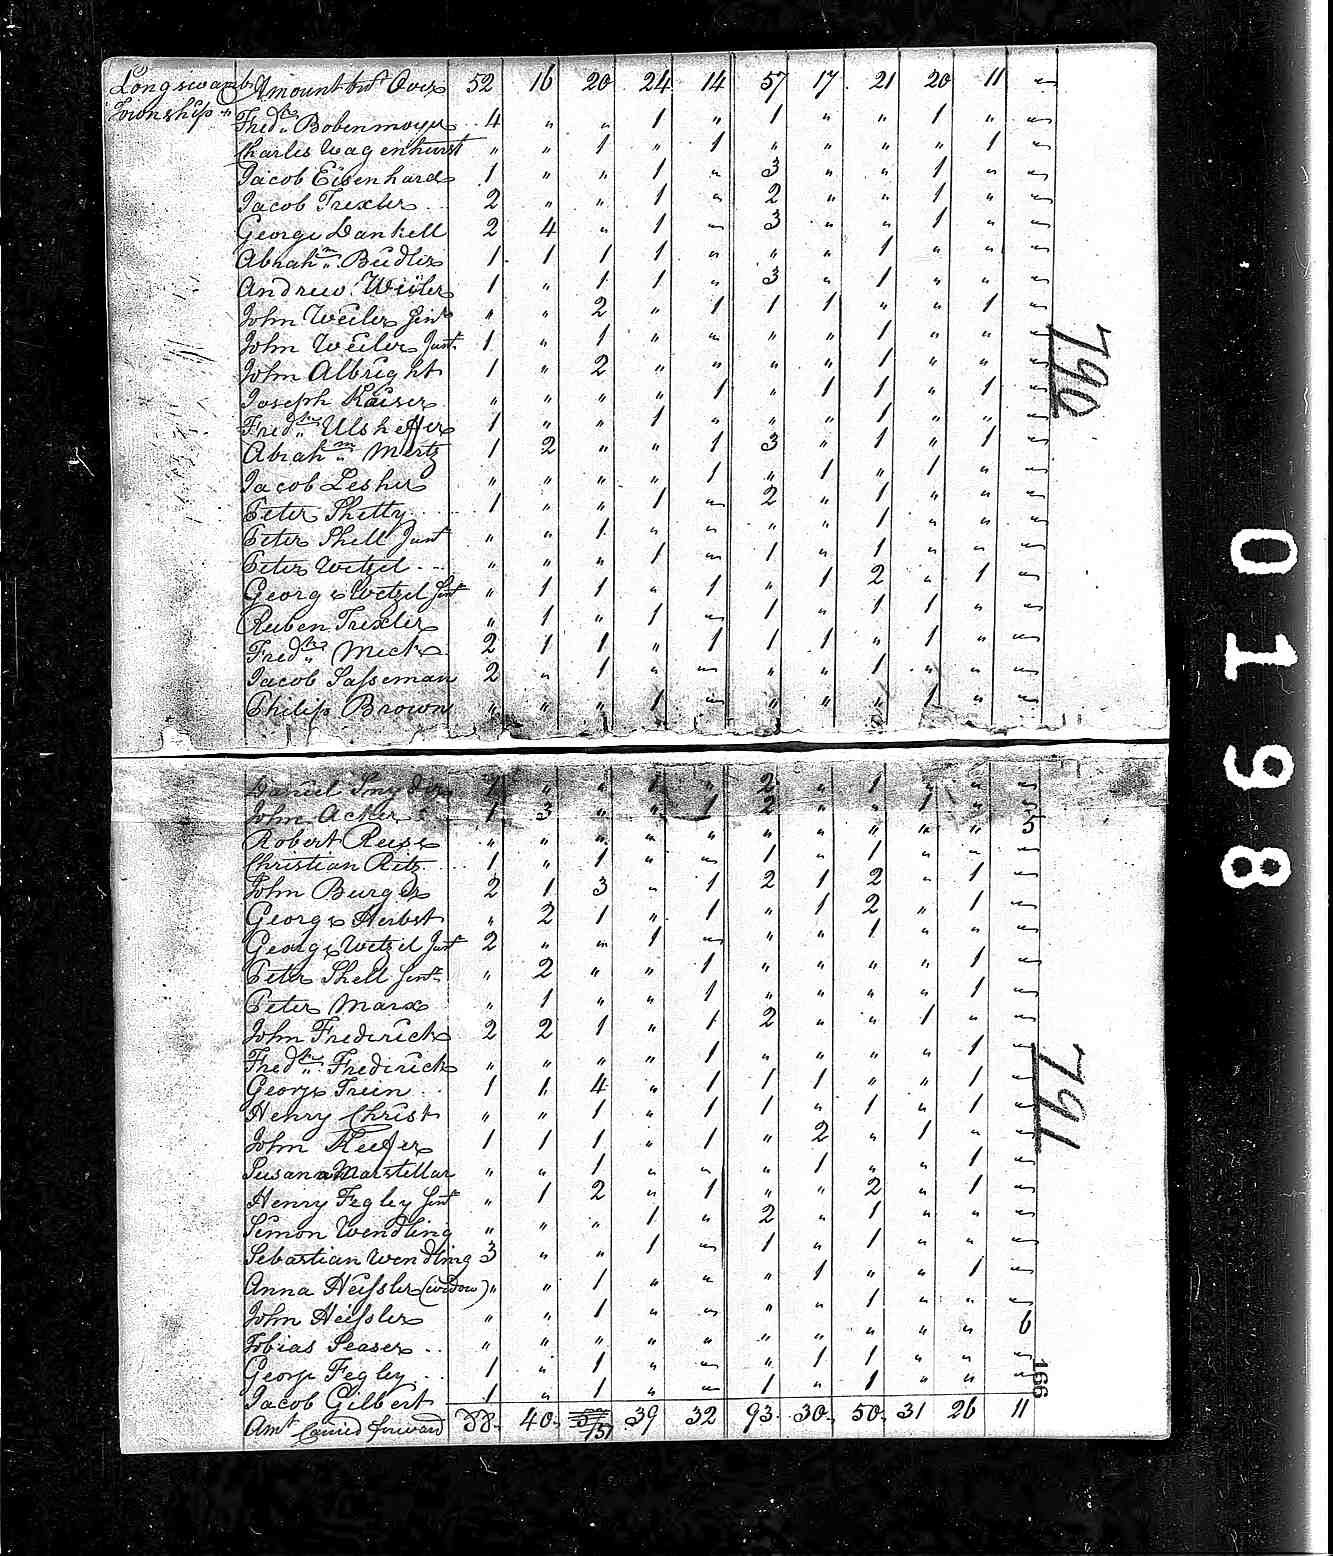 Longswamb Amount brt Over 52 16 20 24 14 57 17 21 20 11 "
Township "
Fredk. Bobenmoyer 4 " " 1 " 1 " " 1 " "
Charles Wagenhurst " " 1 " 1 " " " " 1 "
Jacob Eisenhard 1 " " 1 " 3 " " 1 " "
Jacob Trexler 2 " " 1 " 2 " " 1 " "
George Dankell 2 4 " 1 " 3 " " 1 " "
Abrahm. Beidler 1 1 1 1 " " " 1 " " "
Andrew Weiler 1 " 1 1 " 3 " 1 " " "
John Weiler Senr " " 2 " 1 1 1 " " 1 "
John Weiler Junr. 1 " 1 " " " " 1 " " "
John Albright 1 " 2 " " " " 1 " " "
Joseph Kaiser " " " " 1 " 1 1 " 1 "
Fredk. Ulsheffer 1 " " 1 " " " 1 " " "
Abrahm. Mertz 1 2 " " 1 3 " 1 " 1 "
Jacob Lesher " " " " 1 " 1 " 1 " "
Peter Shetty 1 " " 1 " 2 " 1 " " "
Peter Shell Junr " " 1 " " " " 1 " " "
Peter Wetzel " " " 1 " 1 " 1 " " "
George Wetzel Senr " 1 1 " 1 " 1 2 " 1 "
Ruben Trexler " 1 " 1 " 1 " 1 1 " "
Fredk. Mick 2 1 1 " 1 1 1 " 1 " "
Jacob Sasseman 2 " 1 " " " " 1 " " "
Philip Brown " " " 1 " " " " 1 " "
790
Daniel Snyder 1 " " 1 " 2 " 1 " " "
John Acker 1 3 " " 1 2 " " 1 " 5
Robert Reese " " " " " " " " " " 5
Christian Ritz 1 " 1 " " 1 " 1 " " "
John Burger 2 1 3 " 1 2 1 2 " 1 "
George Herbst " 2 1 " 1 " 1 2 " 1 "
George Wetzel Junr 2 " " 1 " " " 1 " " "
Peter Shell Senr. " 2 " " 1 " " " " 1 "
Peter Marx " 1 " " 1 " " " " 1 "
John Frederick 2 2 1 " 1 2 " " 1 " "
Fredk. Frederick " " " " 1 " " " " 1 "
George Trein 1 1 4 " 1 1 1 " " 1 "
Henry Christ " " 1 " 1 1 " 1 " 1 "
John Keefer 1 1 1 " 1 " 2 " 1 " "
Susanna Marstellar " " 1 " " " 1 " " 1 "
Henry Fegley Senr " 1 2 " 1 " " 2 " 1 "
Simon Wendling " " " 1 " 2 " 1 " " "
Sebastian Wendling 3 " " 1 " 1 " 1 " " "
Anna Heissler (widow) " " 1 " " " 1 " " 1 "
John Heissler " " 1 " " " " 1 " " "
Tobias Seaser " " " " " " " " " " 6
George Fegley 1 " 1 " " " 1 1 " " "
Jacob Gilbert 1 " 1 " " 1 " 1 " " "
Amt Carried forward 88 40 57 39 32 93 30 50 31 26 11
791
166
0198